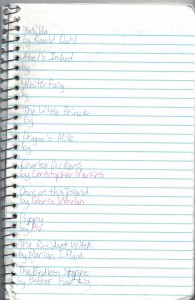 Matilda
by Roald Dahl
Abel's Island
by
White Fang
by
The Little Prince
by
Dragon's Milk
by
Charles Dickens
by Christopher Martin
Once on this Island
by Gloria Whelan
Poppy
by Avi
The Resident Witch
by Marian T. Place
The Endless Steppe
by Esther Hautzig